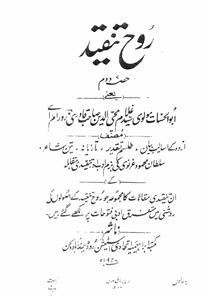 روح تنقید
حصہ دوم
(یعنی)
ابو الحسنات مولوی سید غلام محی الدین صاحب قادری زور ام اے
(مصنف)
اردو کے اسالیب بیان، طلسم تقدیر، تازیانہ، تین شاعر،
سلطان محمود غزنوی کی بزم ادب، تنقیدی مقالہ
کے
ان تنقیدی مقالات کا مجموعہ جو روح تنقید کے اصولوں کی
روشنی میں متفرق ادبی موضوعات پر لکھے گئے ہیں۔
ناشر
مکتبہ ابراہیمیہ امداد باہمی اسٹیشن روڈ حیدرآباد دکن